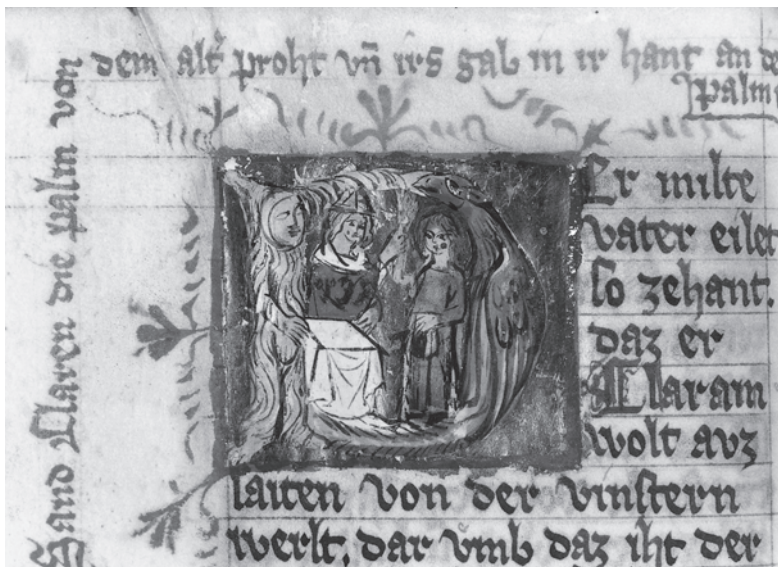 Sand Claren die palm von
dem alt' proht vñ irs gab in ir hant an de
palm
Er milte
vater eilet
so zehant.
daz er
Claram
wolt avz
laiten von der vinstern
werlt, dar vmb daz iht der